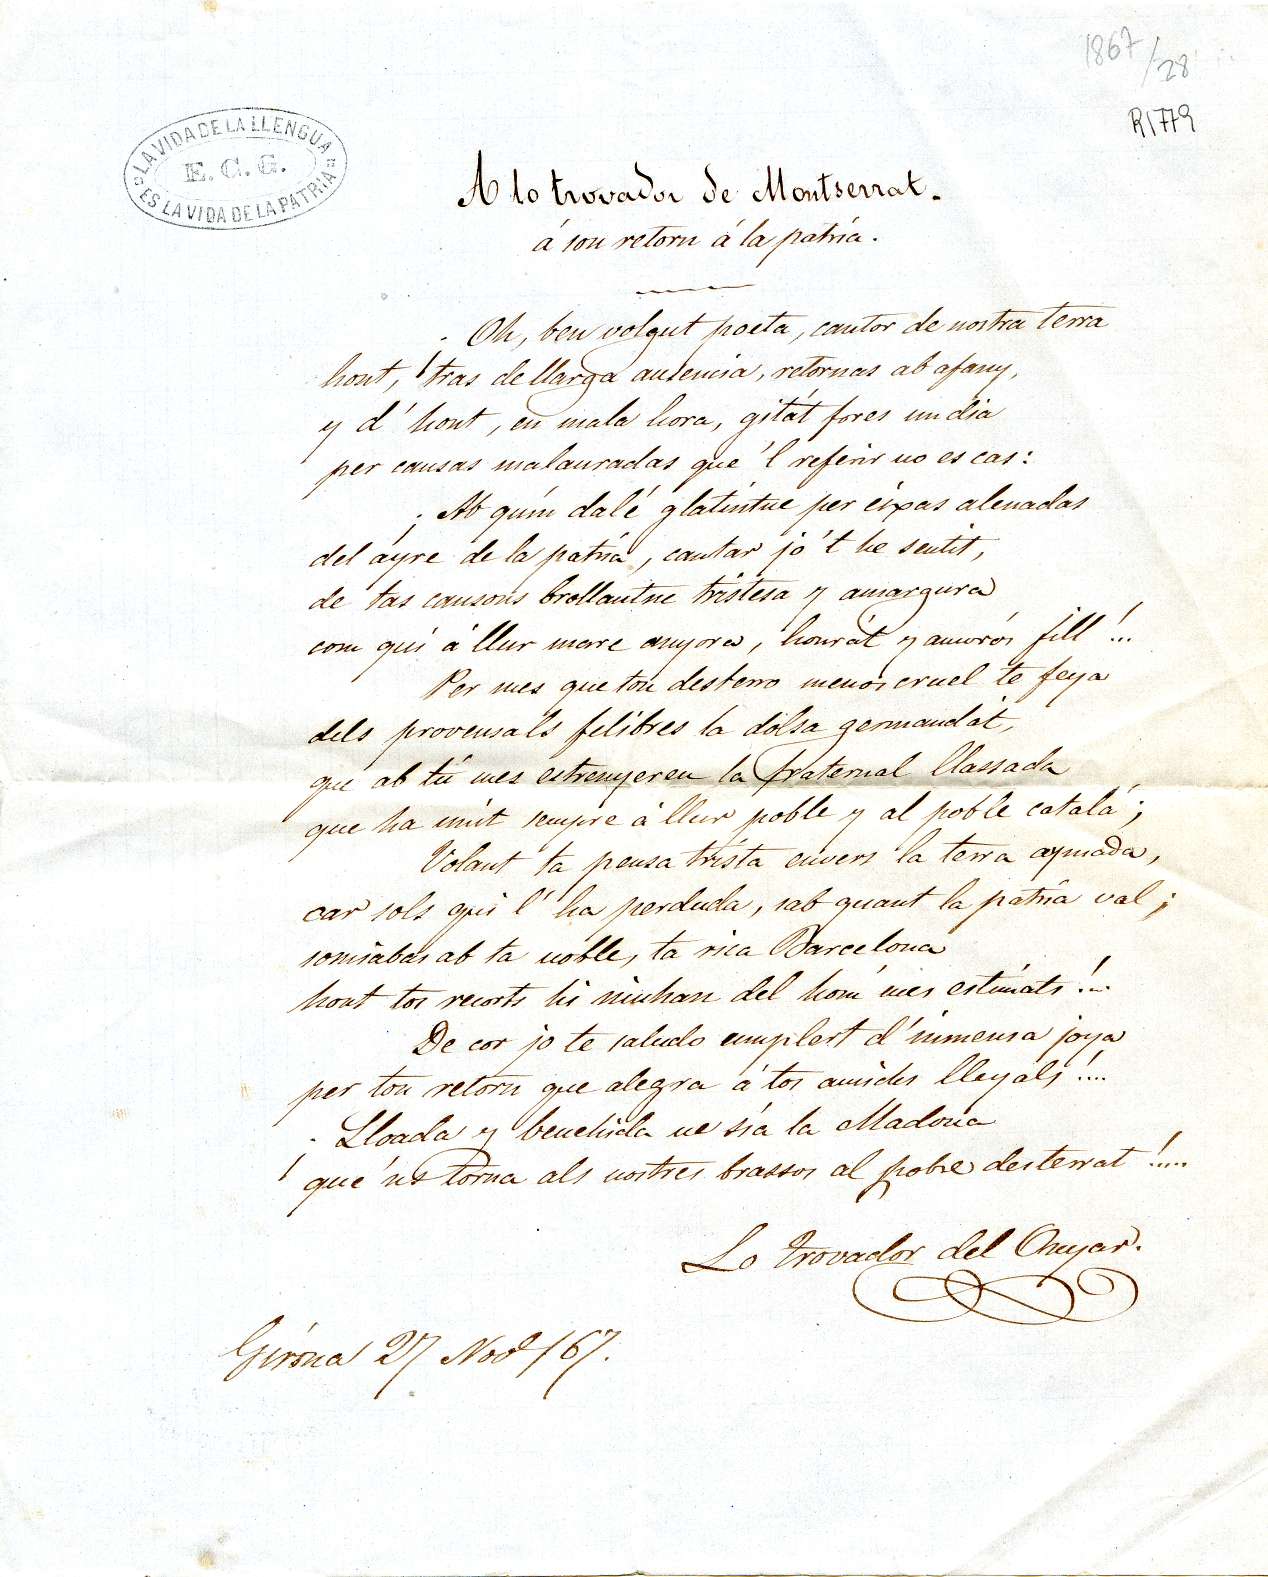 1867/28
R1779
LA VIDA DE LA LLENGUA
E. C. G.
ES LA VIDA DE LA PATRIA
A lo trovador de Montserrat.
á son retorn á la patría.
¡Oh, ben volgut poeta, cantor de nostra terra
hont, tras de llarga ausencia, retornas ab afany,
y d' hont, en mala hora, gitát fores un dia
per causas malauradas que 'l referir no es cas:
¡Ab quín dalé glatíntne per eixas alenadas
del áyre de la patría, cantar jo 't he sentit,
de tas cansons brollantne tristesa y amargura
com qui á llur mare anyora, honrát y amorós fill!...
Per mes que ton desterro menos cruel te feya
dels provensals felibres la dolsa germandát,
que ab tú mes estrenyeren la fraternal llassada
que ha unit sempre á llur poble y al poble catalá;
Volant ta pensa trista envers la terra aymada,
car sols qui l' ha perduda, sab quant la patría val;
somiabas ab ta noble, ta rica Barcelona
hont tos recorts hi ninhan del hom mes estimats!...
De cor jo te saludo umplert d' inmensa joya
per ton retorn que alegra á tos amichs lleyals!....
¡Lloada y benehida ne sía la Madona
que 'ns torna als nostres brassos al pobre desterrat!.....
Lo trovador del Onyar.
Girona 27 Nov.e /67.